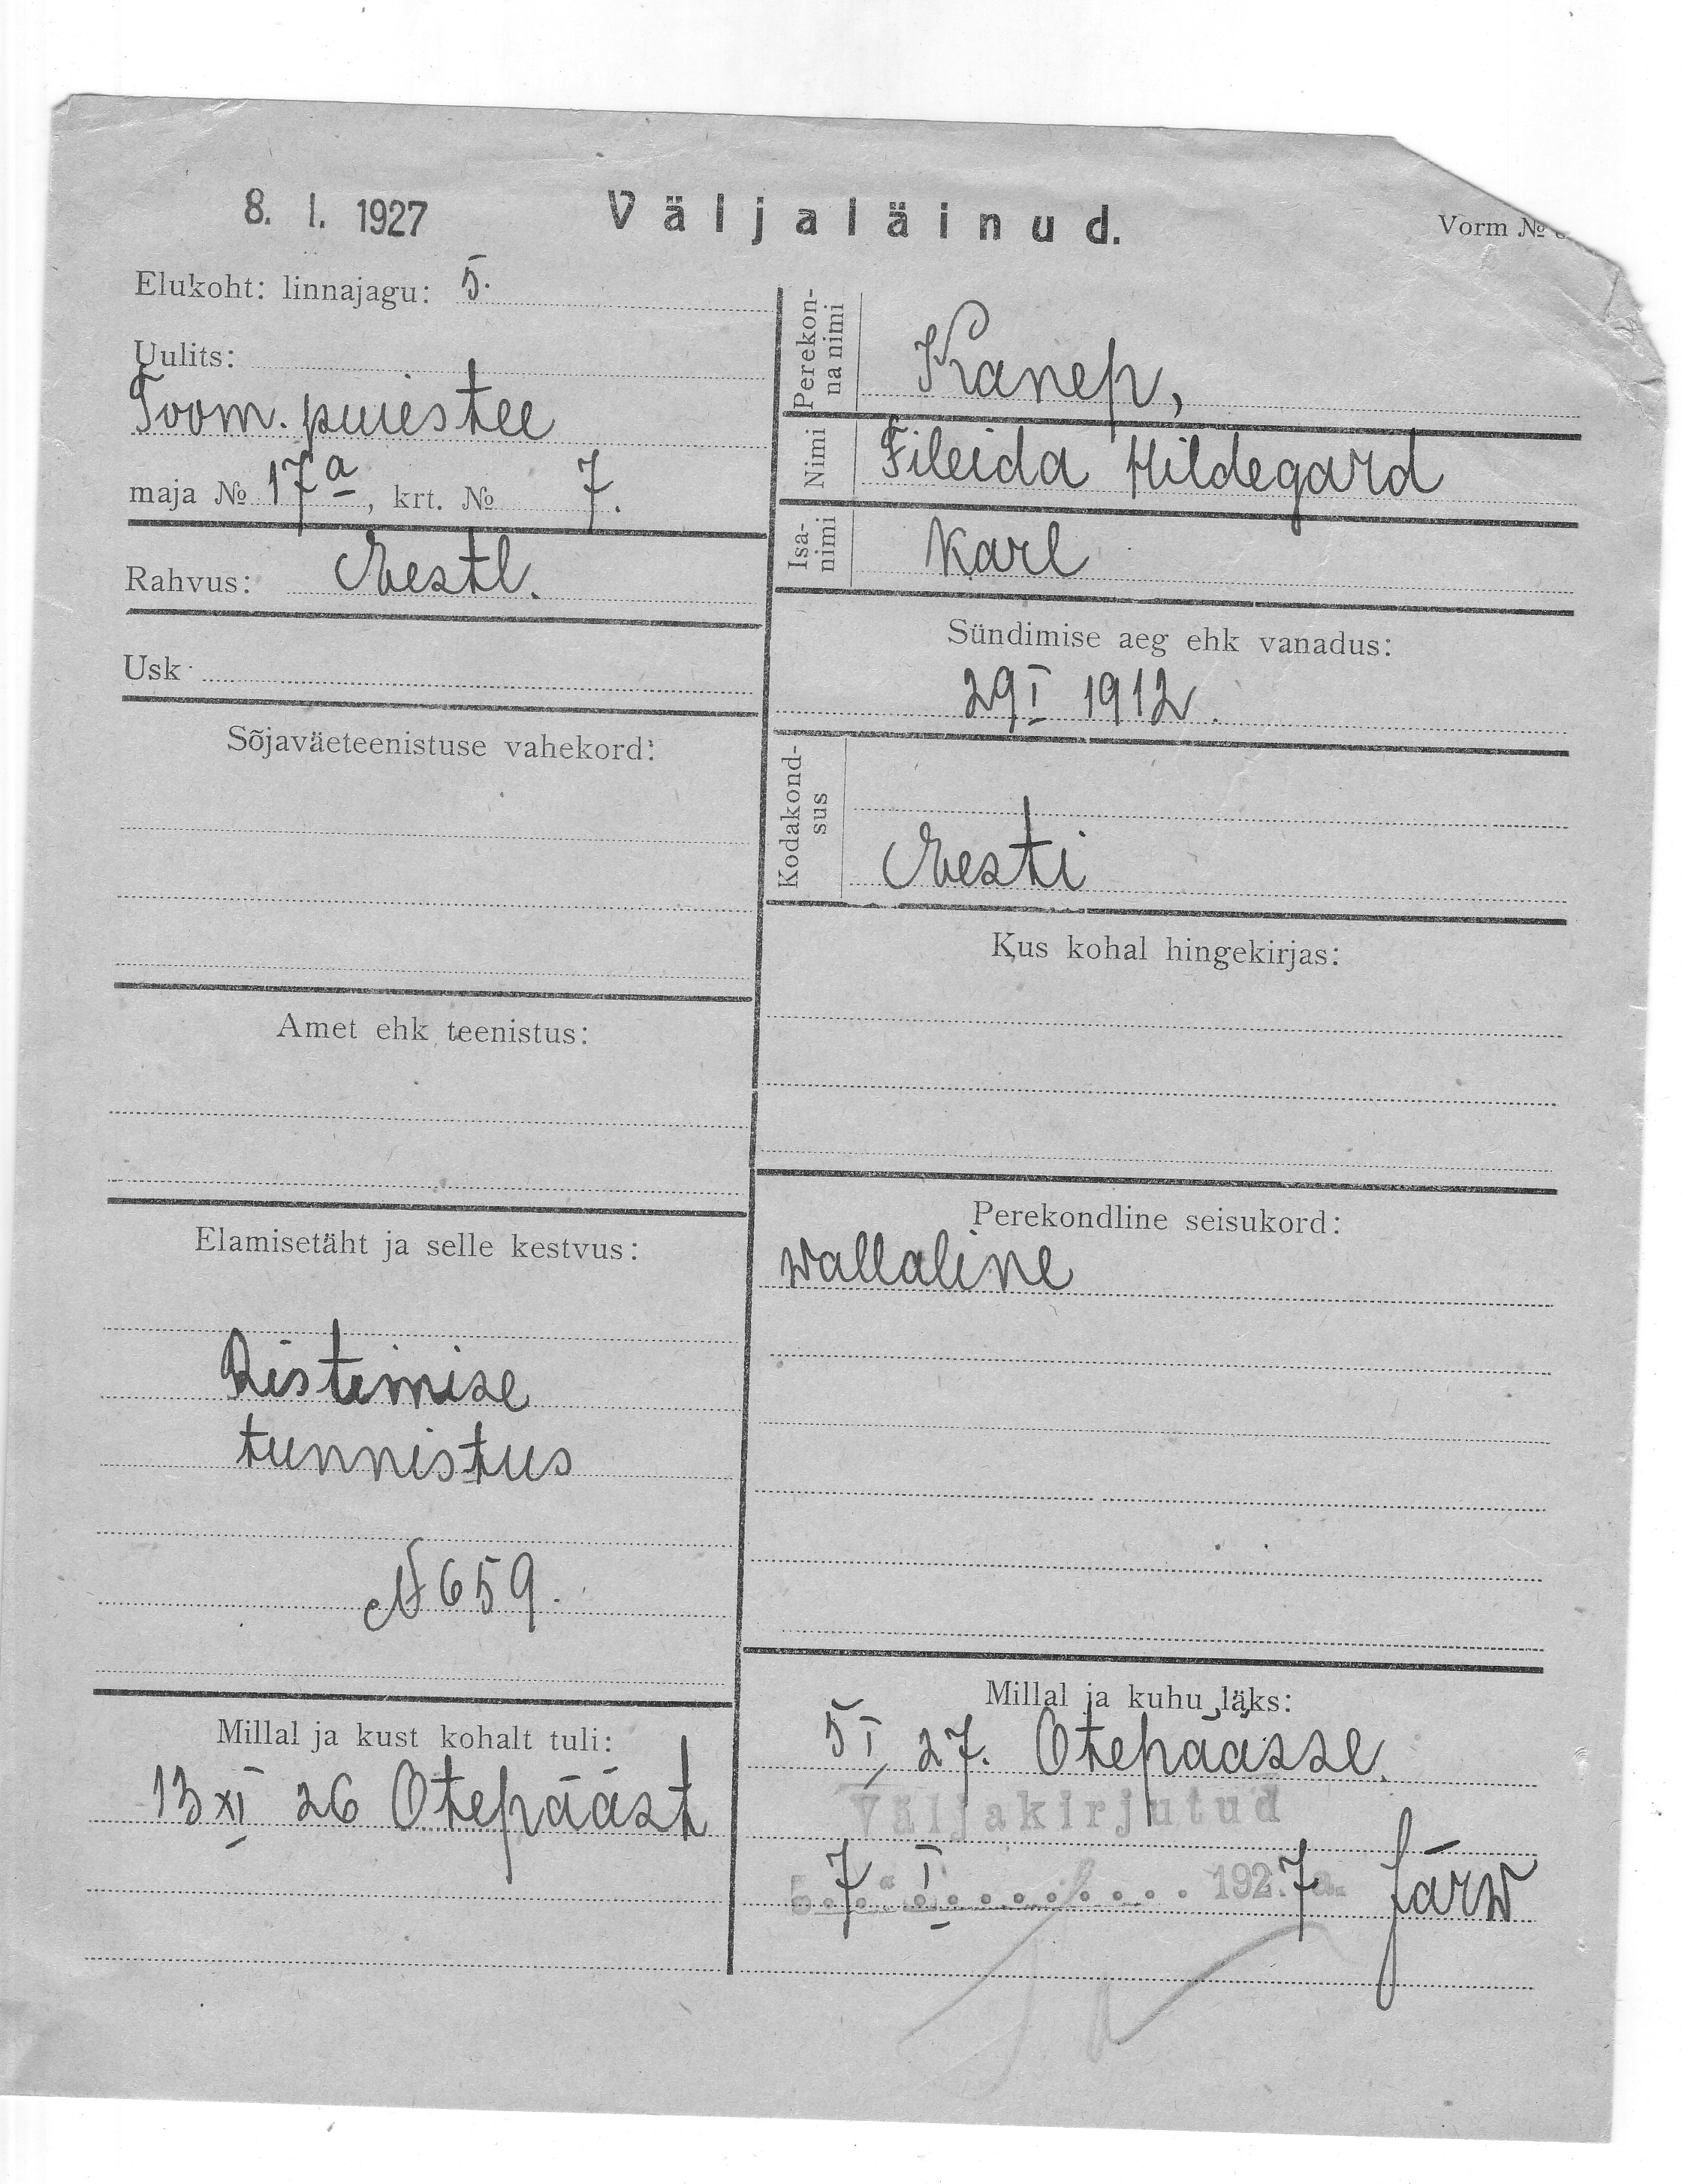 8. I. 1927
Väljaläinud.
Vorm №
Elukoht: linnajagu: 5.
Uulits:
Toom. puiestee
maja № 17a, krt. № 7.
Rahvus: Eestl.
Usk
Sõjaväeteenistuse vahekord:
Amet ehk teenistus:
Elamisetäht ja selle kestvus:
Ristimise
tunnistus
N 659.
Millal ja kust kohalt tuli:
13 XI 26 Otepääst
Perekonna nimi
Kanep,
Nimi
Fileida Hildegard
Isanimi
Karl
Sündimise aeg ehk vanadus:
29 I 1912.
Kodakondsus
Eesti
Kus kohal hingekirjas:
Perekondline seisukord:
wallaline
Millal ja kuhu läks:
5 I, 27. Otepäässe.
Väljakirjutud
7 I 1927 a. Järw